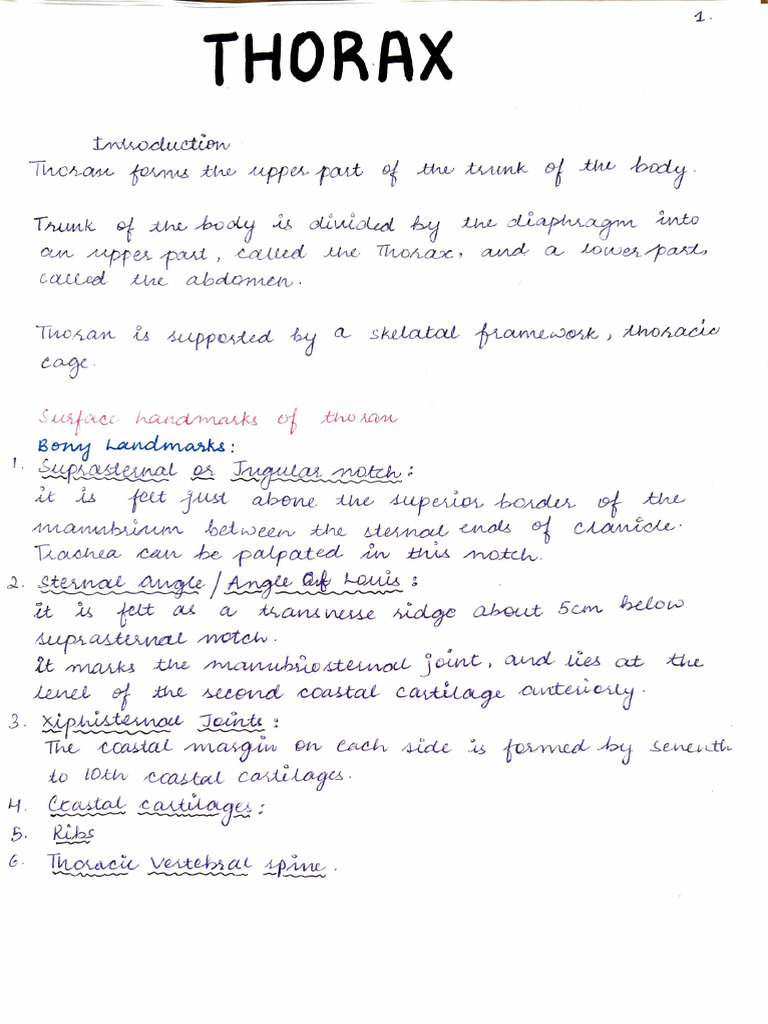 1.
THORAX
Introduction
Thorax forms the upper part of the trunk of the body.
Trunk of the body is divided by the diaphragm into
an upper part, called the Thorax, and a lower part,
called the abdomen.
Thorax is supported by a skelatal framework, thoracic
cage.
Surface handmarks of thorax
Bony Landmarks:
1. Suprasternal or Jugular notch:
it is felt just above the superior border of the
manubrium between the sternal ends of clavicle.
Trachea can be palpated in this notch.
2. Sternal angle/Angle of Louis:
it is felt as a transverse ridge about 5cm below
suprasternal notch.
it marks the manubriosternal joint, and lies at the
level of the second coastal cartilage anteriorly.
3. Xiphisternal Joints:
The coastal margin on each side is formed by seventh
to 10th coastal cartilages.
4. Coastal cartilages:
5. Ribs
6. Thoracic vertebral spine.